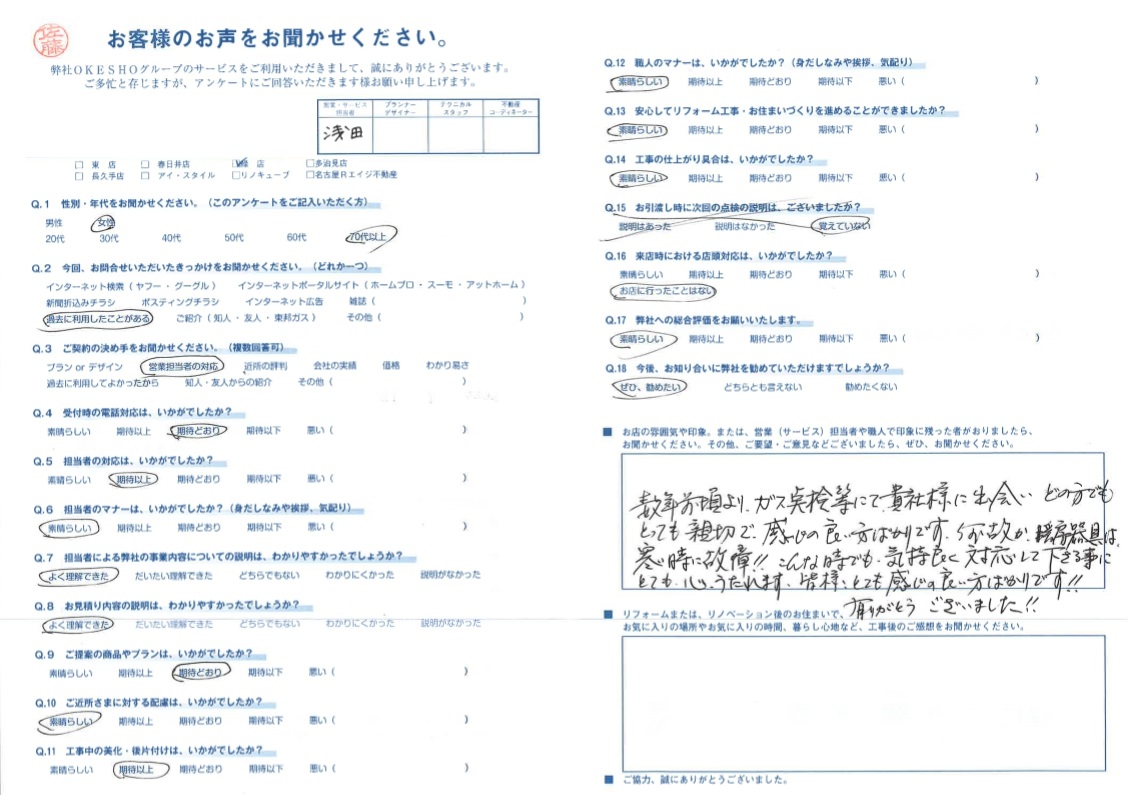 佐藤
お客様のお声をお聞かせください。
弊社OKESHOグループのサービスをご利用いただきまして、誠にありがとうございます。
ご多忙と存じますが、アンケートにご回答いただきます様お願い申し上げます。
営業・サービス 担当者 プランナー デザイナー テクニカル スタッフ 不動産 コーディネーター
浅田
□ 東 店 □ 春日井店 店 □多治見店
□ 長久手店 □ アイ・スタイル □リノキューブ □名古屋Rエイジ不動産
Q.1 性別・年代をお聞かせください。(このアンケートをご記入いただく方)
男性 女性
20代 30代 40代 50代 60代 70代以上
Q.2 今回、お問合せいただいたきっかけをお聞かせください。(どれか一つ)
インターネット検索(ヤフー・グーグル) インターネットポータルサイト(ホームプロ・スーモ・アットホーム)
新聞折込みチラシ ポスティングチラシ インターネット広告 雑誌( )
過去に利用したことがある ご紹介(知人・友人・東邦ガス) その他( )
Q.3 ご契約の決め手をお聞かせください。(複数回答可)
プラン or デザイン 営業担当者の対応 近所の評判 会社の実績 価格 わかり易さ
過去に利用してよかったから 知人・友人からの紹介 その他( )
Q.4 受付時の電話対応は、いかがでしたか?
素晴らしい 期待以上 期待どおり 期待以下 悪い( )
Q.5 担当者の対応は、いかがでしたか?
素晴らしい 期待以上 期待どおり 期待以下 悪い( )
Q.6 担当者のマナーは、いかがでしたか?(身だしなみや挨拶、気配り)
素晴らしい 期待以上 期待どおり 期待以下 悪い( )
Q.7 担当者による弊社の事業内容についての説明は、わかりやすかったでしょうか?
よく理解できた だいたい理解できた どちらでもない わかりにくかった 説明がなかった
Q.8 お見積り内容の説明は、わかりやすかったでしょうか?
よく理解できた だいたい理解できた どちらでもない わかりにくかった 説明がなかった
Q.9 ご提案の商品やプランは、いかがでしたか?
素晴らしい 期待以上 期待どおり 期待以下 悪い( )
Q.10 ご近所さまに対する配慮は、いかがでしたか?
素晴らしい 期待以上 期待どおり 期待以下 悪い( )
Q.11 工事中の美化・後片付けは、いかがでしたか?
素晴らしい 期待以上 期待どおり 期待以下 悪い( )
Q.12 職人のマナーは、いかがでしたか?(身だしなみや挨拶、気配り)
素晴らしい 期待以上 期待どおり 期待以下 悪い( )
Q.13 安心してリフォーム工事・お住まいづくりを進めることができましたか?
素晴らしい 期待以上 期待どおり 期待以下 悪い( )
Q.14 工事の仕上がり具合は、いかがでしたか?
素晴らしい 期待以上 期待どおり 期待以下 悪い( )
Q.15 お引渡し時に次回の点検の説明は、ございましたか?
説明はあった 説明はなかった 覚えていない
Q.16 来店時における店頭対応は、いかがでしたか?
素晴らしい 期待以上 期待どおり 期待以下 悪い( )
お店に行ったことはない
Q.17 弊社への総合評価をお願いいたします。
素晴らしい 期待以上 期待どおり 期待以下 悪い( )
Q.18 今後、お知り合いに弊社を勧めていただけますでしょうか?
ぜひ、勧めたい どちらとも言えない 勧めたくない
■ お店の雰囲気や印象。または、営業(サービス)担当者や職人で印象に残った者がおりましたら、
お聞かせください。その他、ご要望・ご意見などございましたら、ぜひ、お聞かせください。
数年前頃より、ガス点検等にて貴社様に出会い どの方でも
とても親切で、感じの良い方ばかりです。何故か、暖房器具は、
寒い時に故障!! こんな時でも、気持良く対応して下さる事に
とても、心うたれます。皆様、とても感じの良い方ばかりです!!
有りがとう ございました!!
■ リフォームまたは、リノベーション後のお住まいで、
お気に入りの場所やお気に入りの時間、暮らし心地など、工事後のご感想をお聞かせください。
■ ご協力、誠にありがとうございました。